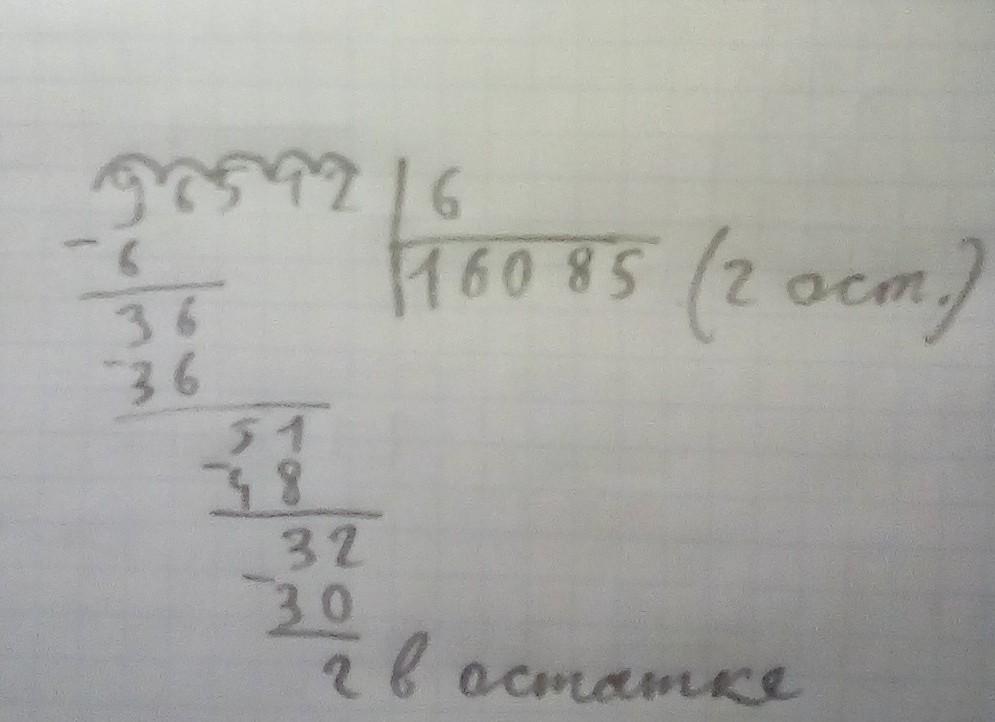 96512 | 6
- 6
16085 (2 ост.)
36
- 36
51
- 48
32
- 30
2 в остатке